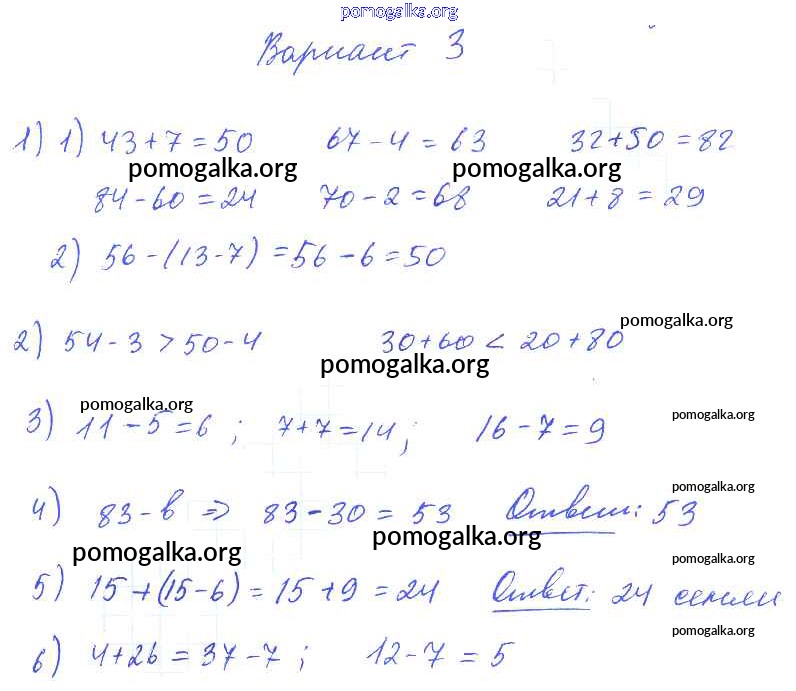 pomogalka.org
Вариант 3
1) 1) 43+7=50 67-4=63 32+50=82
pomogalka.org pomogalka.org
84-60=24 70-2=68 21+8=29
2) 56-(13-7)=56-6=50
pomogalka.org
2) 54-3>50-4 30+60<20+80
pomogalka.org
pomogalka.org pomogalka.org
3) 11-5=6; 7+7=14; 16-7=9
pomogalka.org
4) 83-в => 83-30=53 Ответ: 53
pomogalka.org pomogalka.org pomogalka.org
5) 15+(15-6)=15+9=24 Ответ: 24
pomogalka.org
6) 4+26=37-7; 12-7=5